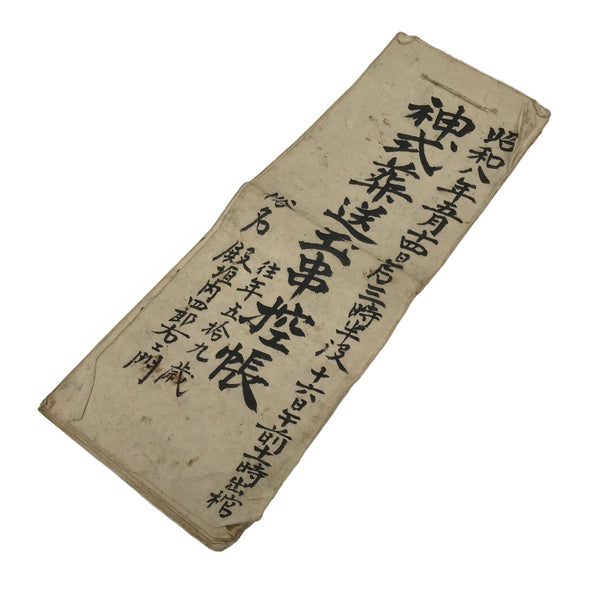 昭和八年五月十四日后三時半没 十六日午前十一時出棺
神式葬送玉串控帳
往年五拾九歳
俗名 殿垣内四郎右エ門